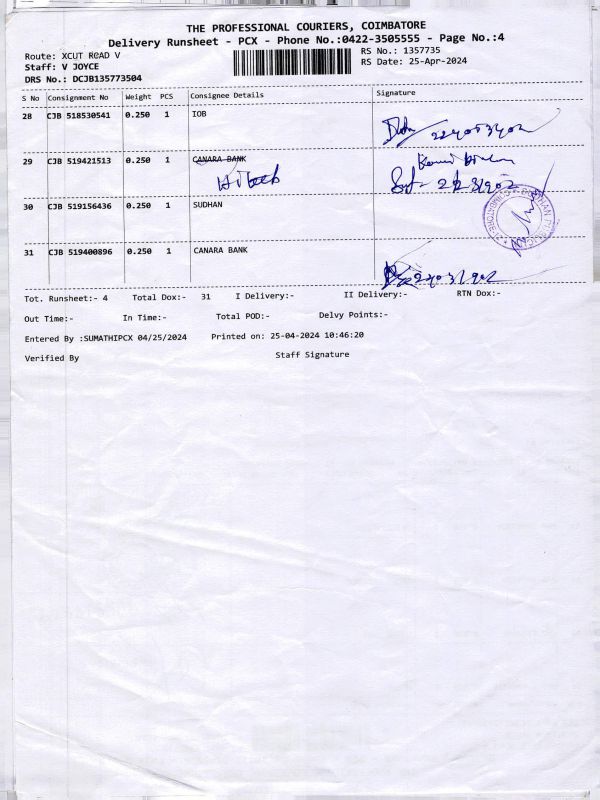 THE PROFESSIONAL COURIERS, COIMBATORE
Delivery Runsheet - PCX - Phone No.:0422-3505555 - Page No.:4
Route: XCUT ROAD V
RS No.: 1357735
Staff: V JOYCE
RS Date: 25-Apr-2024
DRS No.: DCJB135773504
S No Consignment No Weight PCS Consignee Details Signature
28 CJB 518530541 0.250 1 IOB
29 CJB 519421513 0.250 1 CANARA BANK
30 CJB 519156436 0.250 1 SUDHAN
31 CJB 519400896 0.250 1 CANARA BANK
Tot. Runsheet:- 4 Total Dox:- 31 I Delivery:- II Delivery:- RTN Dox:-
Out Time:- In Time:- Total POD:- Delvy Points:-
Entered By :SUMATHIPCX 04/25/2024 Printed on: 25-04-2024 10:46:20
Verified By Staff Signature